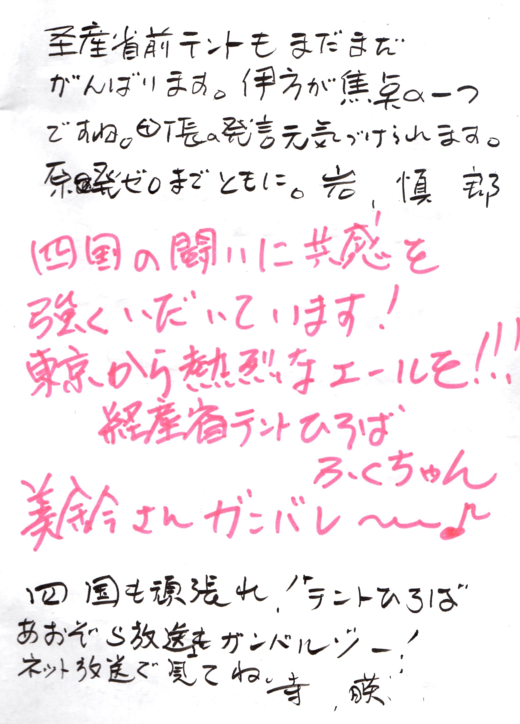 圣産省前テントもまだまだ
がんばります。伊方が焦点の一つ
ですね。町長の発言元気づけられます。
原発ゼロまでともに。岩 慎 郎
四国の闘いに共感を
強くいだいています!
東京から熱烈なエールを!!!
経産省テントひろば
ふくちゃん
美鈴さんガンバレ〜〜♪
四国も頑張れ!テントひろば
あおぞら放送もガンバルゾー!
ネット放送で見てね 寺 暎